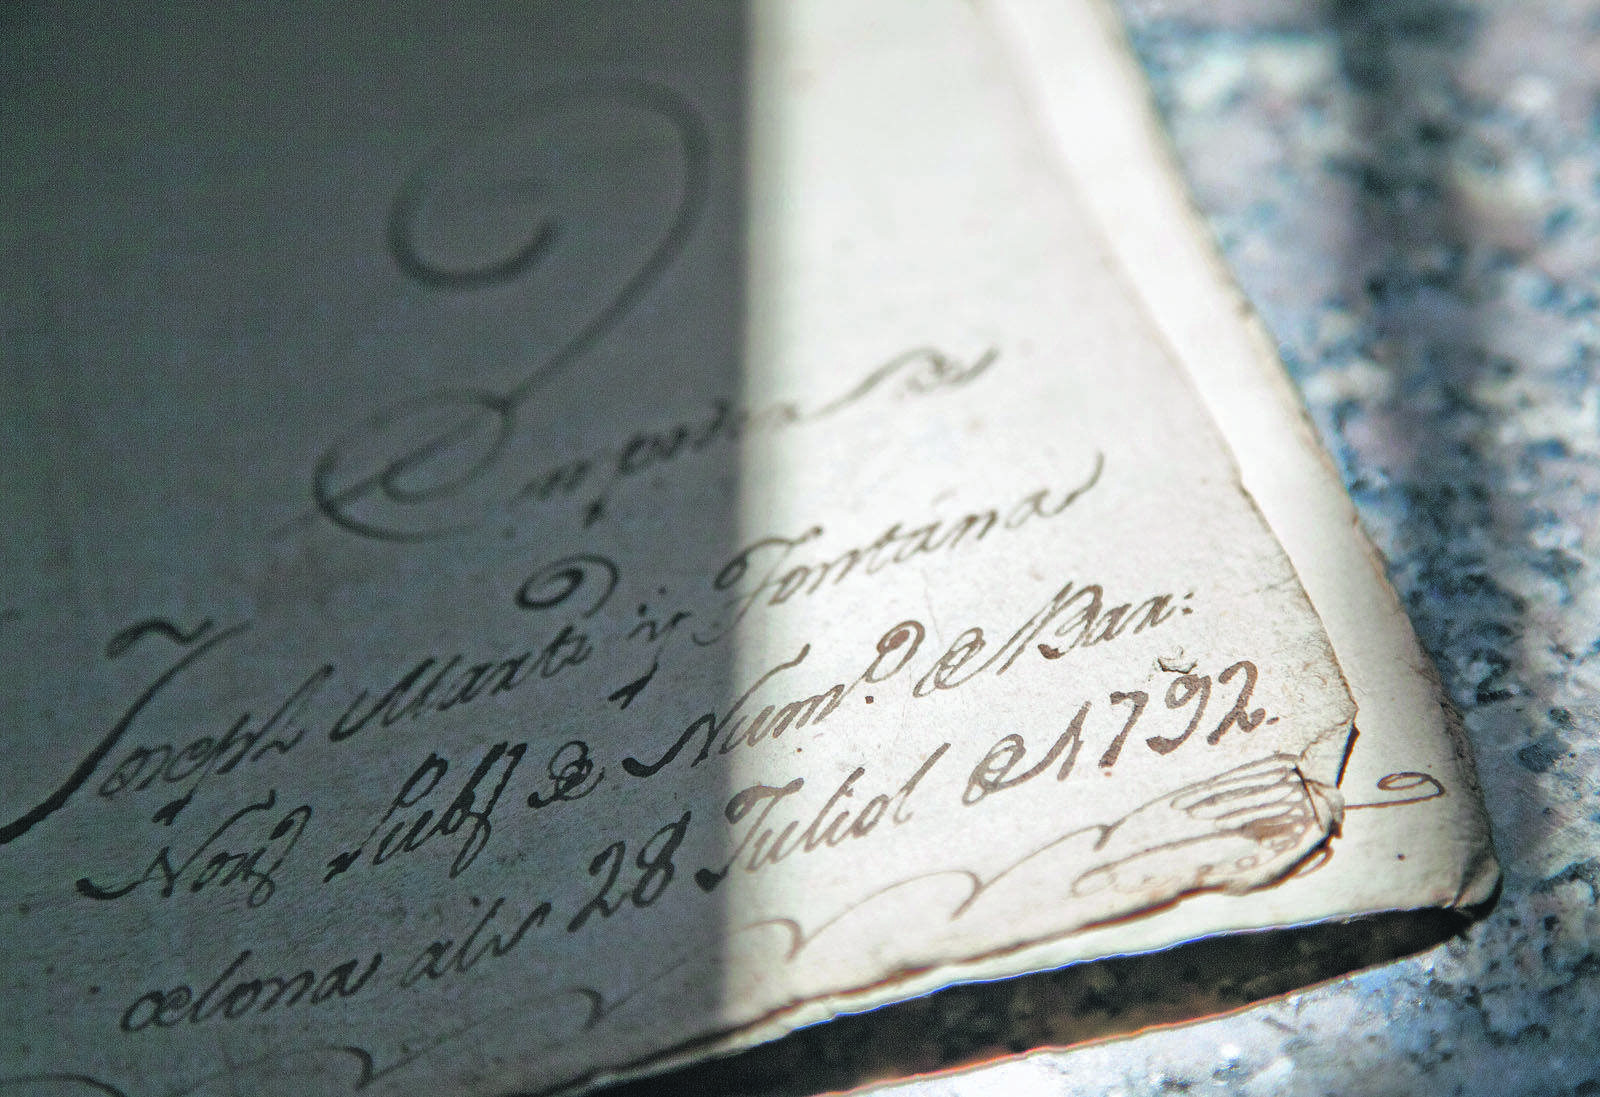 Joseph Marti y Fontana
Not.ͥ Subst de Num.º de Bar:
celona als 28 Juliol de 1792.